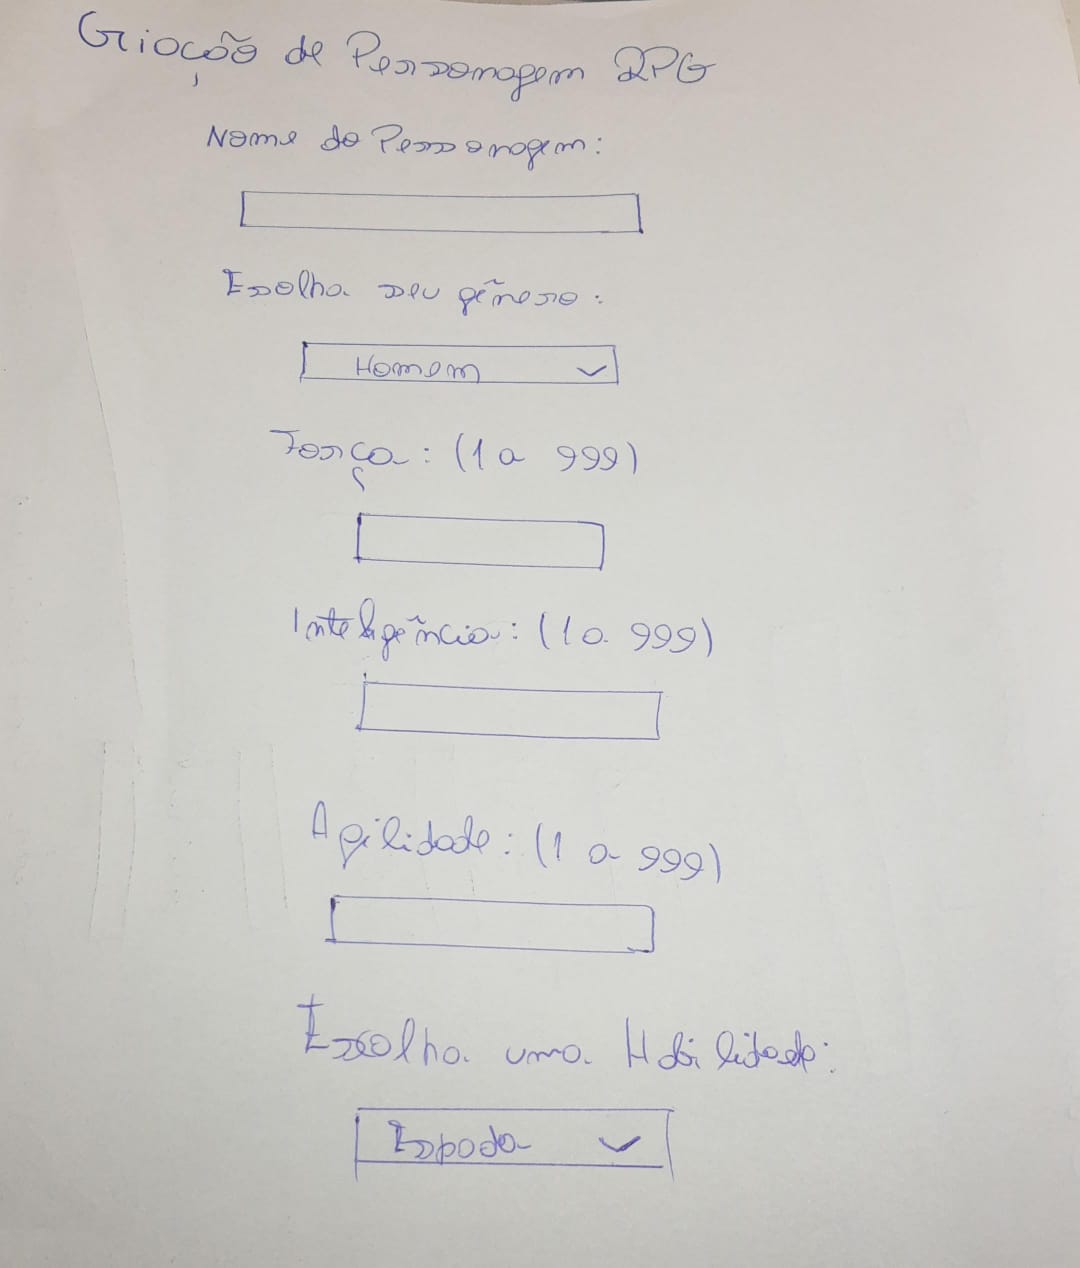 Criação de Personagem RPG
Nome do Personagem:
Escolha seu gênero:
Homem
Força: (1 a 999)
Inteligência: (1 a 999)
Agilidade: (1 a 999)
Escolha uma Habilidade:
Espada